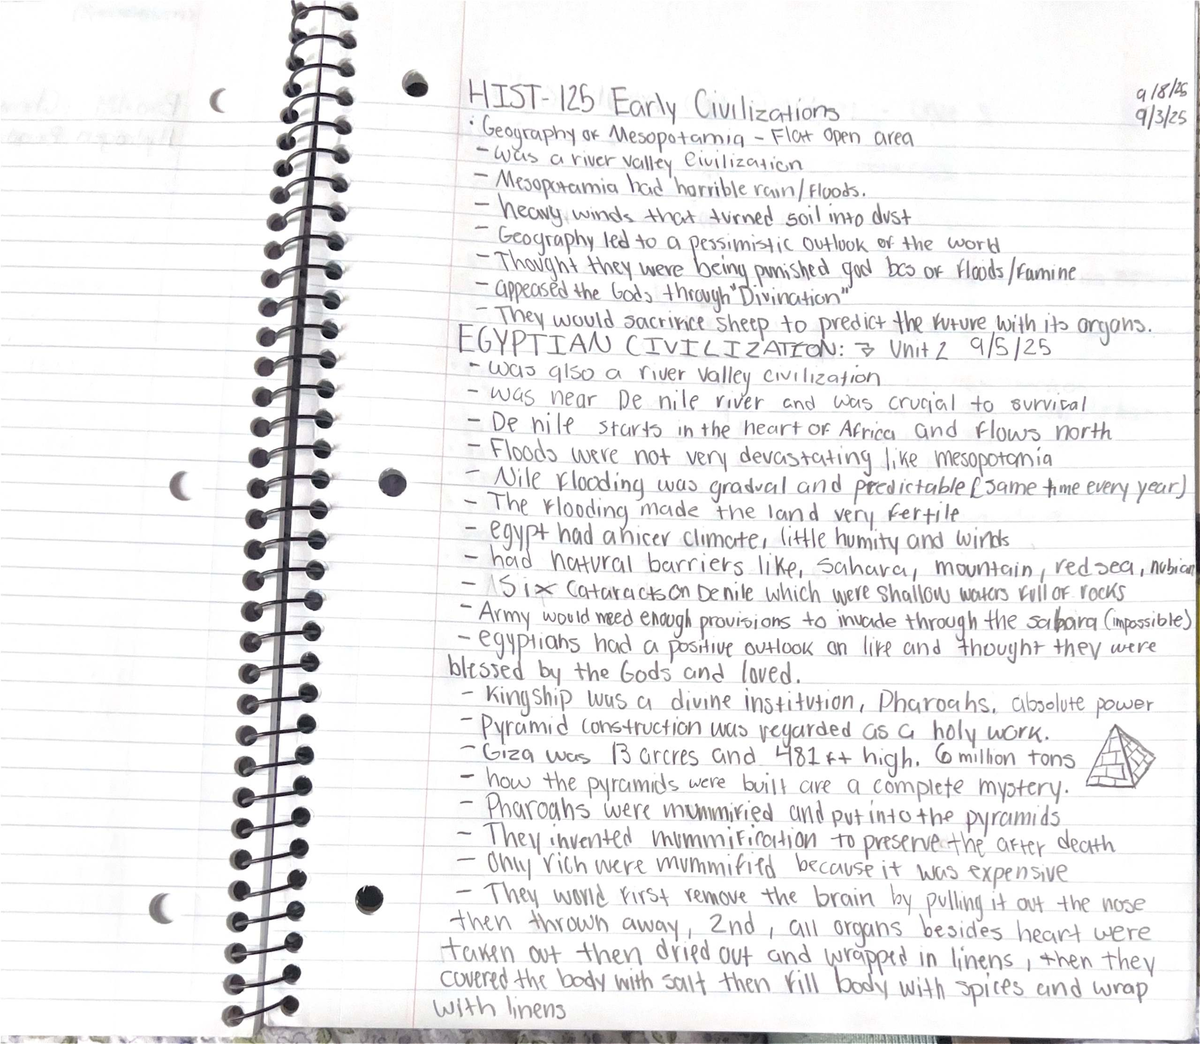 HIST-125 Early Civilizations
9/8/25
9/3/25
• Geography of Mesopotamia - Flat open area
- was a river valley Civilization
- Mesopotamia had horrible rain/floods.
- heavy winds that turned soil into dust
- Geography led to a pessimistic outlook of the world
- Thought they were being punished god bcs of floods/famine
- appeased the Gods through "Divination"
- They would sacrifice sheep to predict the future with its organs.
EGYPTIAN CIVILIZATION: → Unit 2 9/5/25
- was also a river valley civilization
- was near De nile river and was crucial to survival
- De nile starts in the heart of Africa and flows north
- Floods were not very devastating like mesopotamia
- Nile flooding was gradual and predictable (same time every year)
- The flooding made the land very fertile
- egypt had a nicer climate, little humity and winds
- had natural barriers like, Sahara, mountain, red sea, nubian
- Six Cataracts on De nile which were shallow waters full of rocks
- Army would need enough provisions to invade through the sahara (impossible)
- egyptians had a positive outlook on life and thought they were
blessed by the Gods and loved.
- Kingship was a divine institution, Pharoahs, absolute power
- Pyramid construction was regarded as a holy work.
- Giza was 13 arcres and 481 ft high. 6 million tons
- how the pyramids were built are a complete mystery.
- Pharoahs were mummified and put into the pyramids
- They invented mummification to preserve the after death
- only rich were mummified because it was expensive
- They would first remove the brain by pulling it out the nose
then thrown away, 2nd, all organs besides heart were
taken out then dried out and wrapped in linens, then they
covered the body with salt then fill body with spices and wrap
with linens